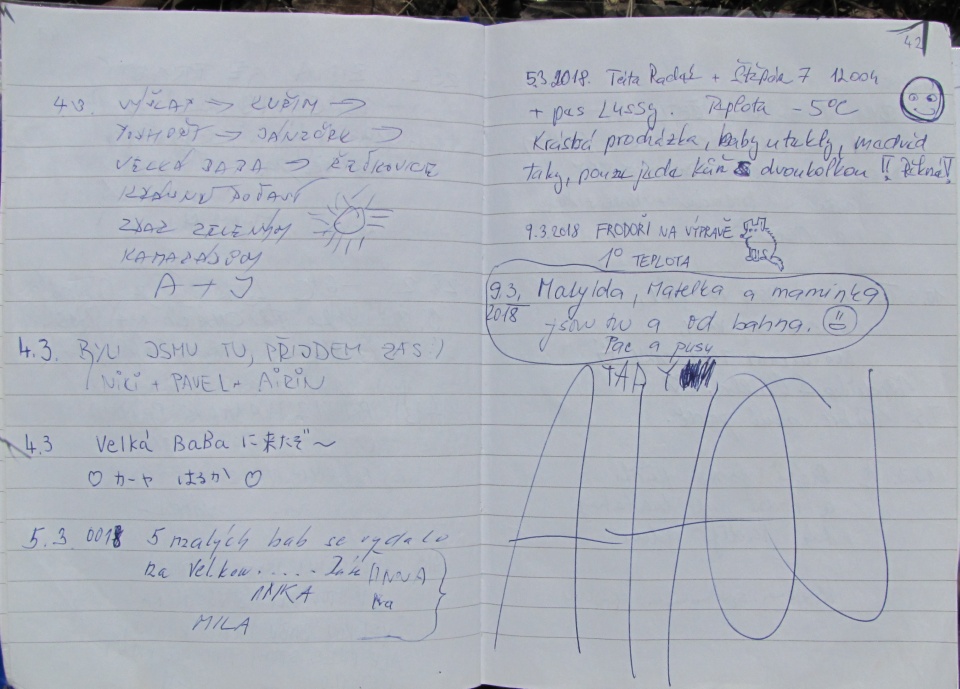 4.3
VELKÁ BABA → ŘEČKOVICE
KRÁSNÉ POČASÍ
ZDAR ZELENÝM
KAMARÁDŮM
A + J
4.3. BYLI JSMU TU, PŘIJDEM ZAS :)
NiKi + PAVEL + AiRiN
4.3 Velká BaBa に来たぞ～
♡ カーヤ はるか ♡
5.3. 0018 5 malých bab se vydalo
na Velkou.....
ANNA
ANKA
MILA
42
5.3.2018. Teta Radka + Štěpán 7 1200h
+ pes Lussy. Teplota -5°C
Krásná procházka, baby utekly, medvěd
taky, pouze jede kůň s dvoukolkou !! Pěkná!
9.3.2018 FRODOŘI NA VÝPRAVĚ
1° TEPLOTA
9.3. 2018 Matylda, Matelka a maminka
jsou tu a od bahna.
Pac a pusu
TADY
AHOJ